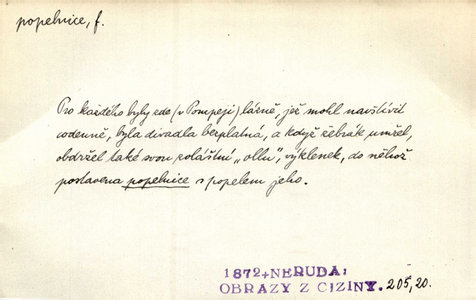 popelnice, f.
Pro každého byly zde (v Pompeji) lázně, jež mohl navštívit
codenně, byla divadla bezplatná, a když žebrák umřel,
obdržel také svou zvláštní „ollu", výklenek, do něhož
postavena popelnice s popelem jeho.
1872+NERUDA;
OBRAZY Z CIZINY. 205,20.